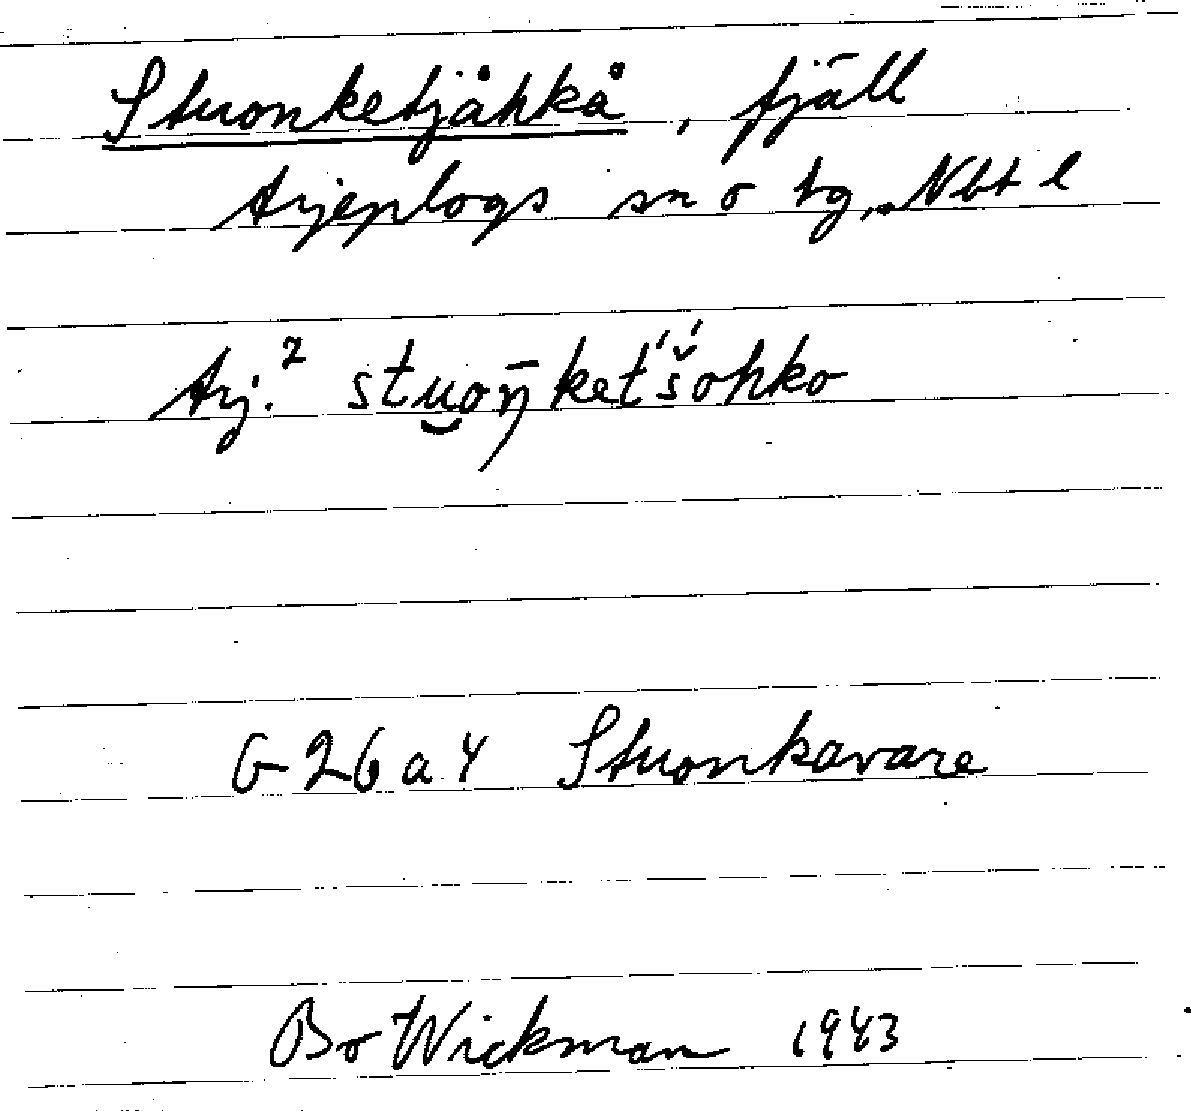 Stuonketjåhkå, fjäll
Arjeplogs sn o tg, Nbt l
Arj.² stu̯oŋ̄ket´š́ohko
G 26 a 4 Stuonkavare
Bo Wickman 1943